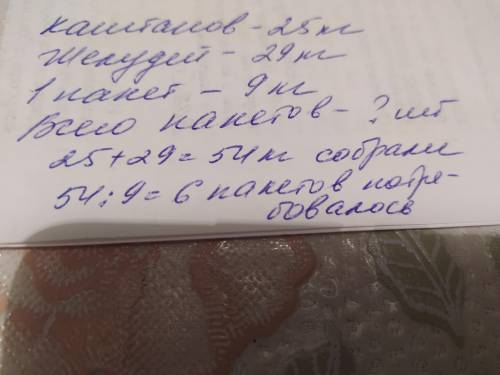 каштанов - 25 кг
Желудей - 29 кг
1 пакет - 9 кг
Всего пакетов - ? шт
25+29=54 кг собрали
54:9=6 пакетов потре-
бовалось